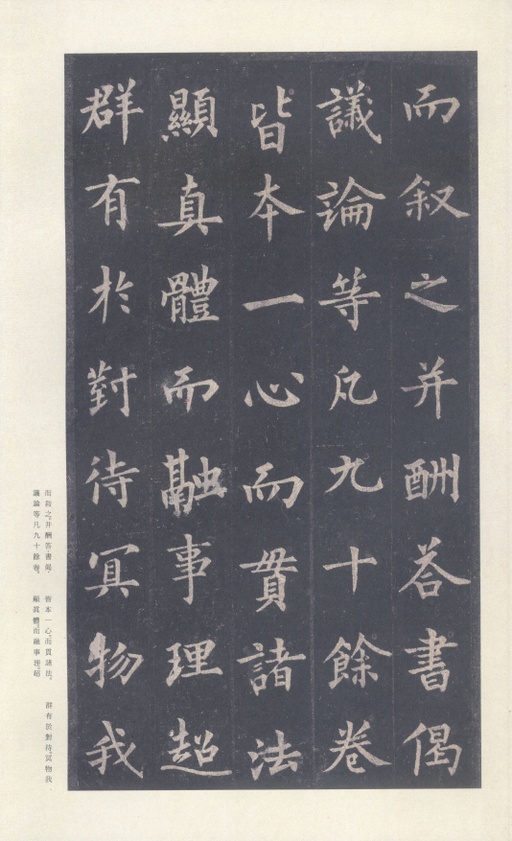 而叙之并酬荅書偈
議論等凡九十餘卷
皆本一心而貫諸法
顯真體而融事理超
群有於對待冥物我
而敍之、并酬答書偈、
議論等凡九十餘卷、
皆本一心、而貫諸法、
顯眞體、而融事理、超
群有於對待、冥物我